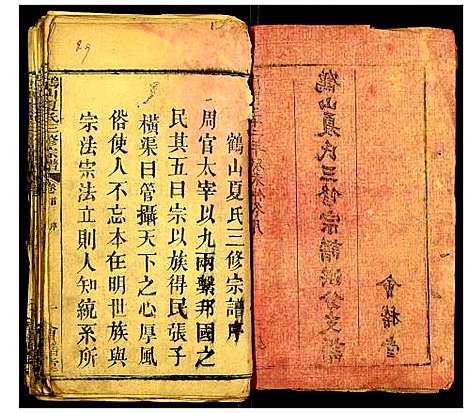 鶴山夏氏三修宗譜
會稽堂
鶴山夏氏三修宗譜序
周官太宰以九兩繫邦國之
民其五曰宗以族得民張子
橫渠曰管攝天下之心厚風
俗使人不忘本在明世族與
宗法宗法立則人知統系所
鶴山夏氏三修宗譜 卷首 序 一 會稽堂